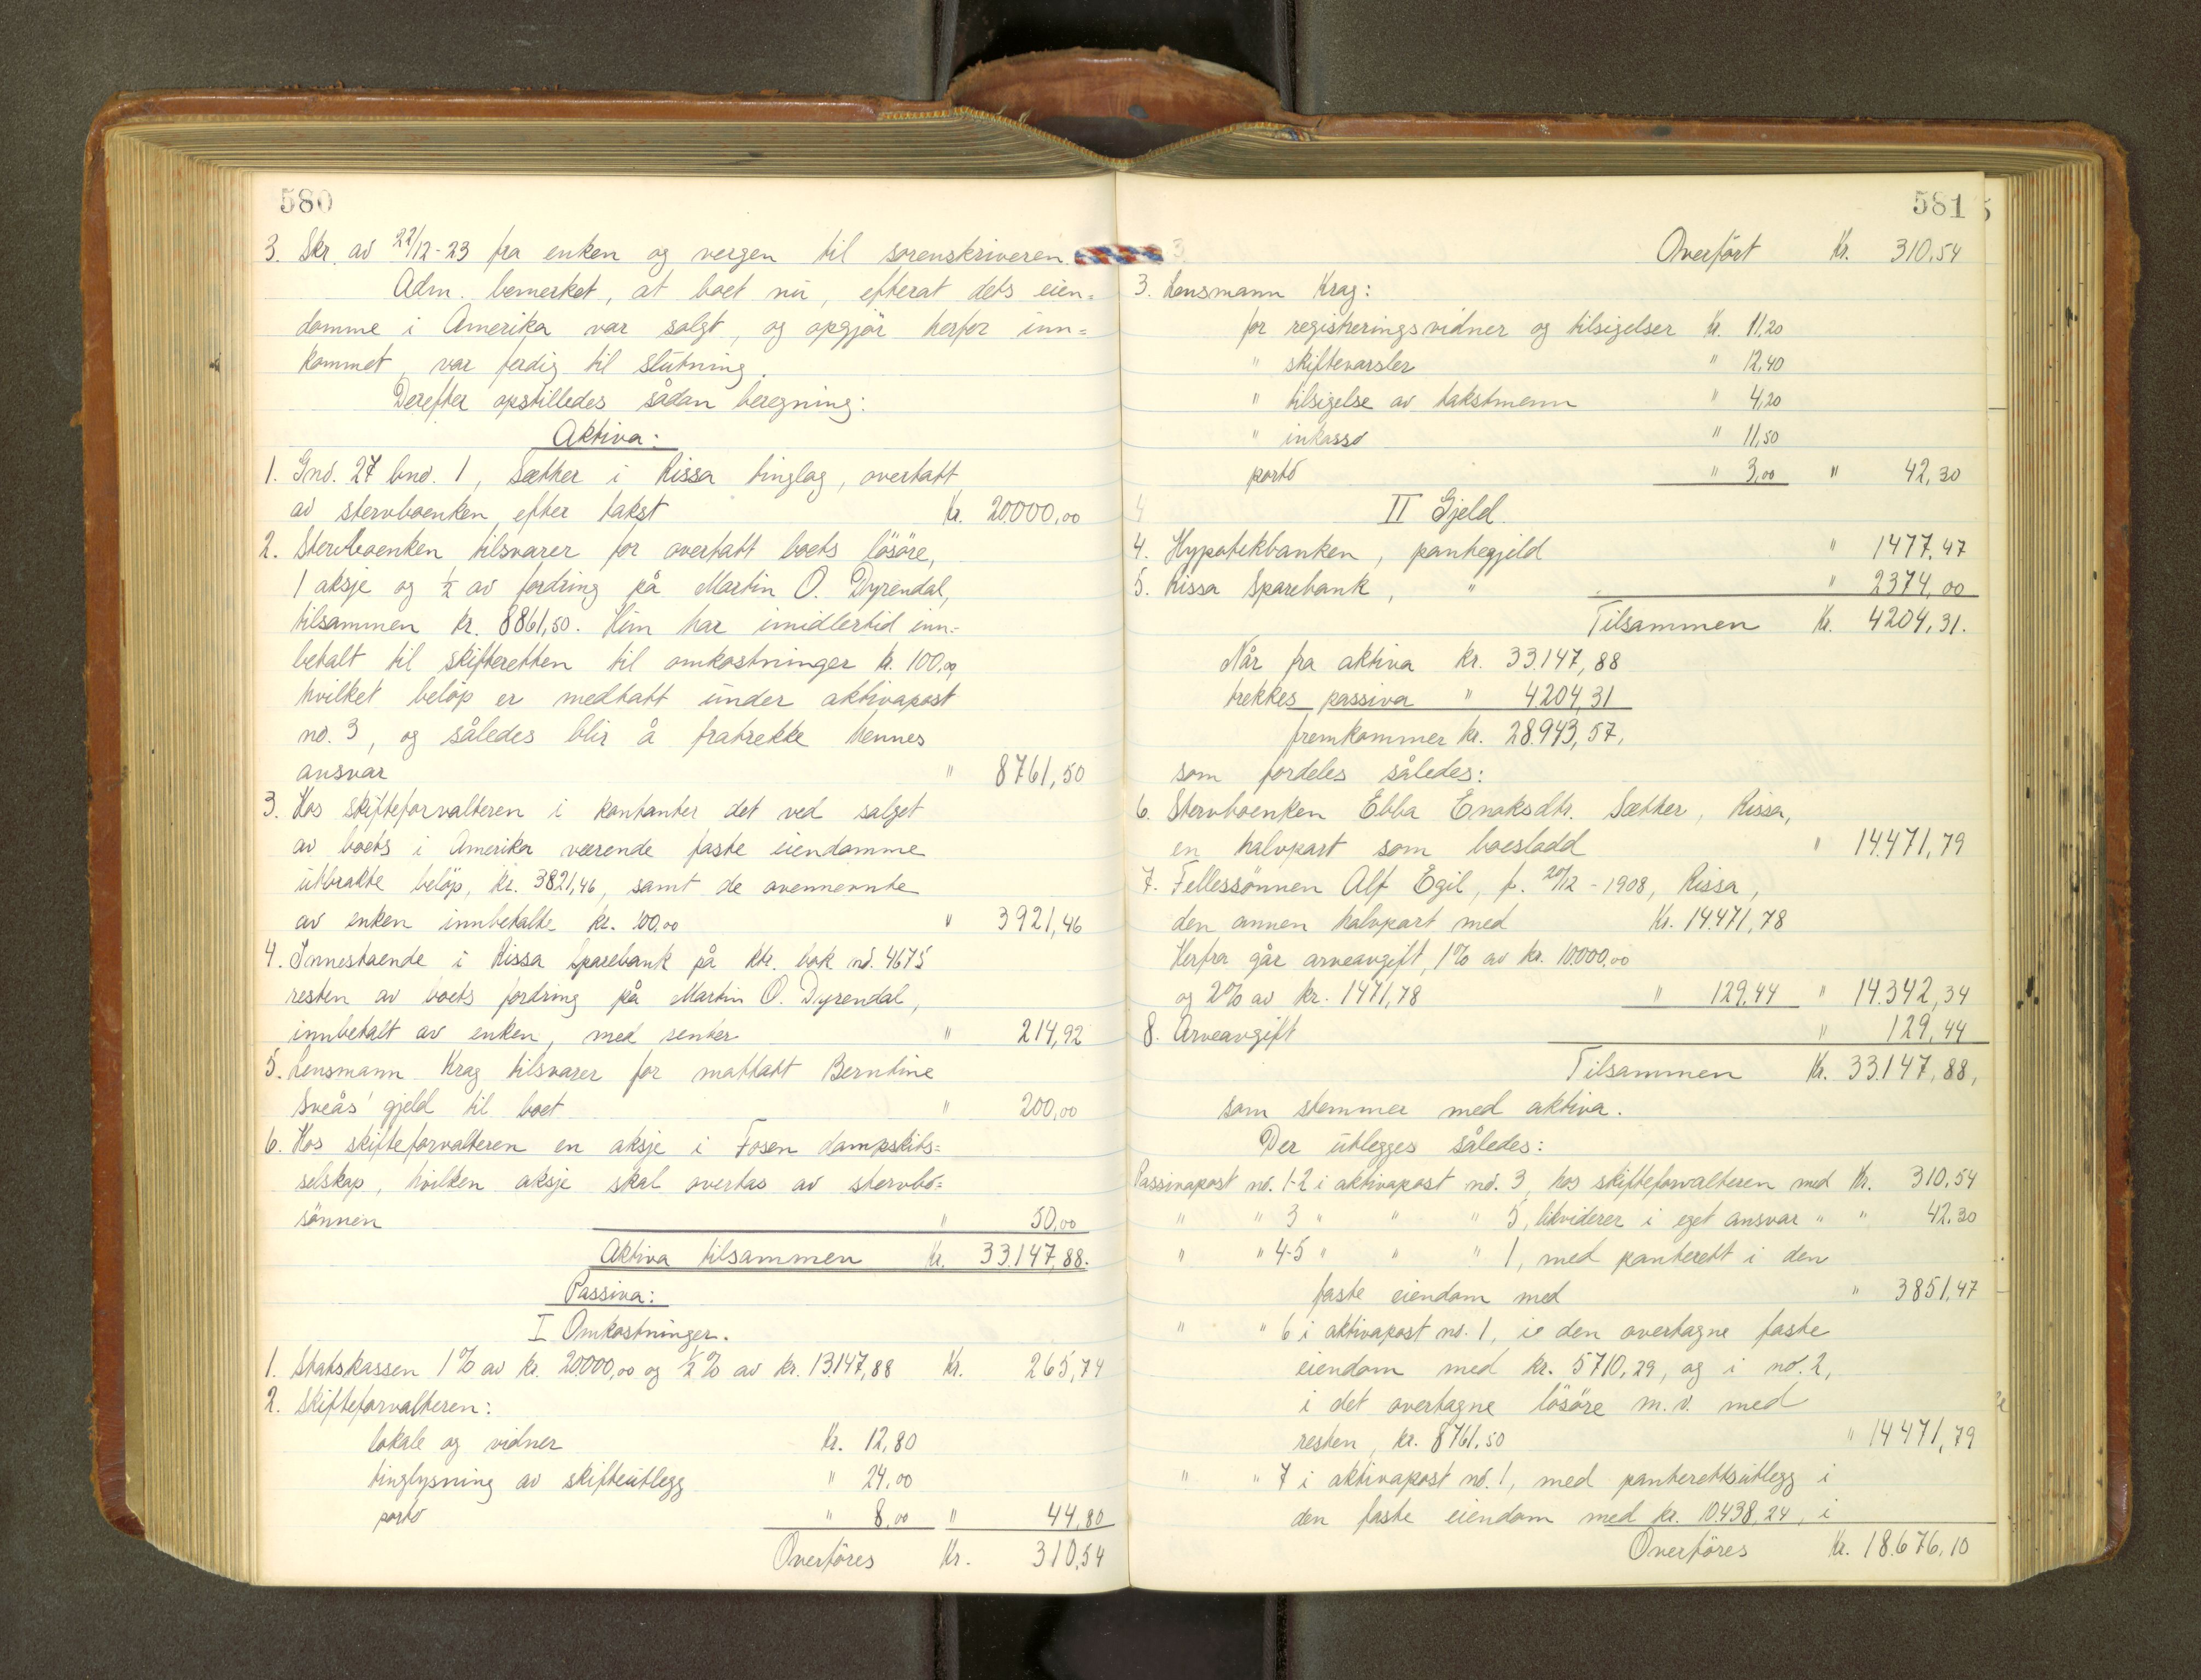 580
3. Skr. av 22/12-23 fra enken og vergen til sorenskriveren
Adm. bemerket, at boet nu, efterat dets eien=
domme i Amerika var solgt, og opgjör herfor inn=
kommet, var ferdig til slutning.
Derefter opstilledes sådan beregning:
Aktiva:
1. Gno. 27 bno. 1, Sæther i Rissa tinglag, overtatt
av stervboenken efter takst Kr. 20000,00
2. Stervboenken tilsvarer for overtatt boets lösöre,
1 aksje og 1/2 av fordring på Martin O. Dyrendal,
tilsammen kr. 8861,50. Hun har imidlertid inn=
betalt til skifteretten til omkostninger kr. 100,00,
hvilket belöp er medtatt under aktivapost
no. 3, og således blir å fratrekke hennes
ansvar " 8761,50
3. Hos skifteforvalteren i kontanter det ved salget
av boets i Amerika værende faste eiendomme
utbrakte belöp, kr. 3821,46, samt de ovennevnte
av enken innbetalte kr. 100,00 " 3921,46
4. Innestaende i Rissa Sparebank på ktr. bok no. 4675
resten av boets fordring på Martin O. Dyrendal,
innbetalt av enken, med renter " 214,92
5. Lensmann Krag tilsvarer for mottatt Berntine
Sveås' gjeld til boet " 200,00
6. Hos skifteforvalteren en aksje i Fosen dampskibs=
selskap, hvilken aksje skal overtas av stervbo=
sönnen " 50,00
Aktiva tilsammen Kr. 33.147,88.
Passiva:
I Omkostninger.
1. Statskassen 1% av kr. 20000,00 og 1/2 % av kr. 13147,88 Kr. 265,74
2. Skifteforvalteren:
lokale og vidner Kr. 12,80
tinglysning av skifteutlegg " 24,00
porto " 8,00 " 44,80
Overföres Kr. 310,54
581
Overfört Kr. 310,54
3. Lensmann Krag:
for registreringsvidner og tilsigelser Kr. 11,20
" skiftevarsler " 12,40
" tilsigelse av takstmenn " 4,20
" inkasso " 11,50
porto " 3,00 " 42,30
II Gjeld.
4. Hypotekbanken, pantegjeld " 1477,47
5. Rissa Sparebank, " " 2374,00
Tilsammen Kr. 4204,31.
Når fra aktiva kr. 33.147,88
trekkes passiva " 4204,31
fremkommer kr. 28.943,57,
som fordeles således:
6. Stervboenken Ebba Enoksdtr. Sæther, Rissa,
en halvpart som boeslodd " 14.471,79
7. Fellessönnen Alf Egil, f. 20/12 - 1908, Rissa,
den annen halvpart med Kr. 14.471,78
Herfra går arveavgift, 1% av kr. 10.000,00
og 2% av kr. 1471,78 " 129,44 " 14.342,34
8. Arveavgift " 129,44
Tilsammen Kr. 33.147,88,
som stemmer med aktiva.
Der utlegges således:
Passivapost no. 1-2 i aktivapost no. 3, hos skifteforvalteren med Kr. 310,54
" " 3 " " " 5, likviderer i eget ansvar " " 42,30
" " 4-5 " " " 1, med panterett i den
faste eiendom med " 3851,47
" " 6 i aktivapost no. 1, i den overtagne faste
eiendom med kr. 5710,29, og i no. 2,
i det overtagne lösöre m.v. med
resten, kr. 8761,50 " 14471,79
" " 7 i aktivapost no. 1, med panterettsutlegg i
den faste eiendom med kr. 10.438,24, i
Overföres Kr. 18.676,10